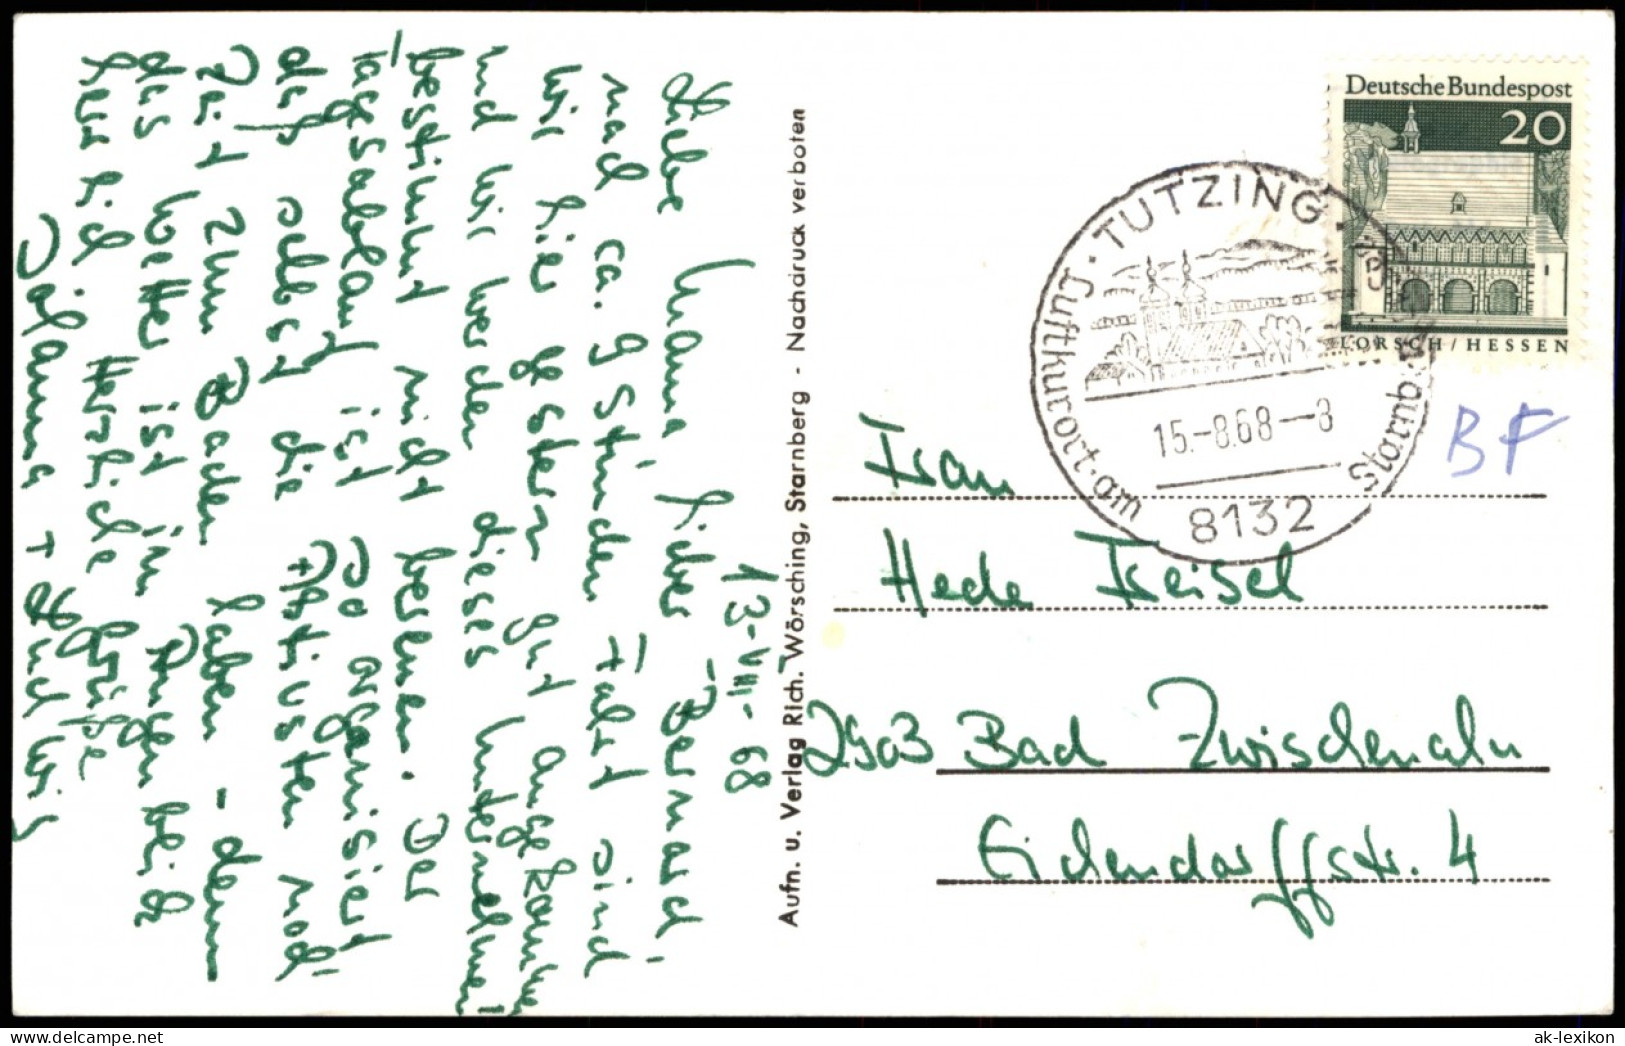 13-VIII-68
Liebe Mama, lieber Bernard,
nach ca. 9 Stunden Fahrt sind
wir hier gestern gut angekommen
und wir werden dieses Unternehmen
bestimmt nicht bereuen. Der
Tagsablauf ist so organisiert
daß selbst die Aktivsten noch
Zeit zum Baden haben - denn
das Wetter ist im Augenblick
herrlich. Herzliche Grüße
Johanna + Ludwig
Aufn. u. Verlag Rich. Wörsching, Starnberg - Nachdruck verboten
Deutsche Bundespost
20
LORSCH/HESSEN
TUTZING
Luftkurort am
Starnb.
15.-8.68-8
8132
BF
Frau
Hede Freisel
2903 Bad Zwischenahn
Eichendorffstr. 4
ak-lexikon